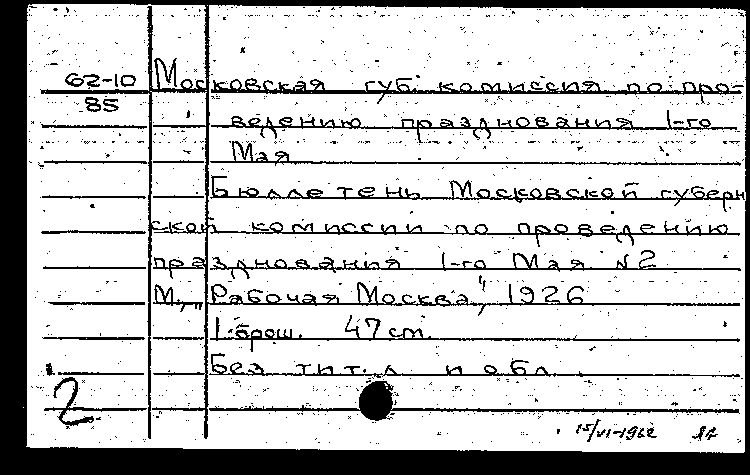 62-10 Московская губ. комиссия по про-
85 ведению празднования 1-го
Мая
Бюллетень Московской губерн
ской комиссии по проведению
празднования 1-го Мая №2
М., „Рабочая Москва", 1926
1 брош. 47 cm.
Без тит. л и обл.
2
15/VI-1962